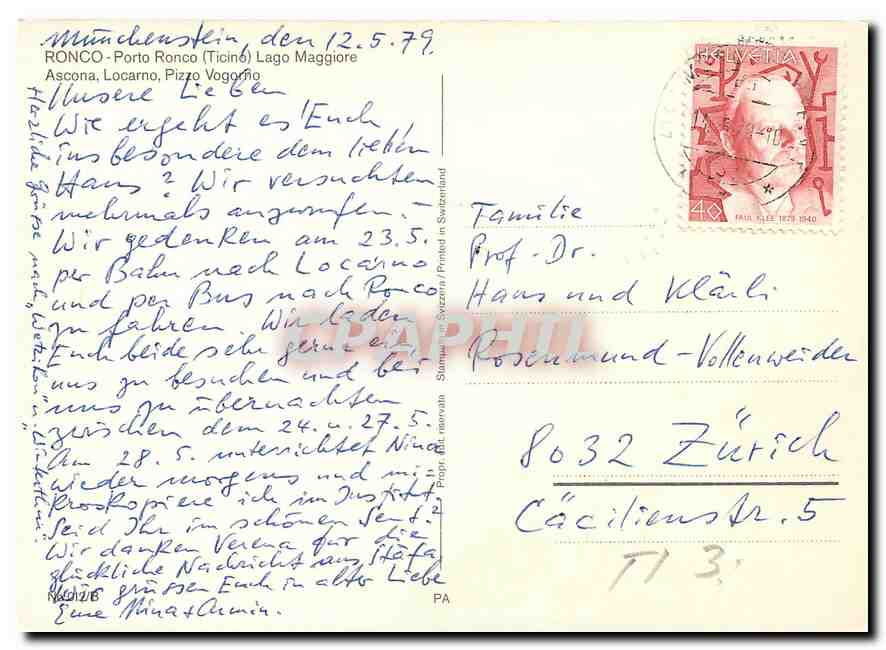 Münchenstein, den 12.5.79.
RONCO - Porto Ronco (Ticino) Lago Maggiore
Ascona, Locarno, Pizzo Vogorno
Unsere Lieben
Wie ergeht es Euch,
insbesondere dem lieben
Hans? Wir versuchten
mehrmals anzurufen. -
Wir gedenken am 23.5.
per Bahn nach Locarno
und per Bus nach Ronco
zu fahren. Wir laden
Euch beide sehr gerne ein,
uns zu besuchen und bei
uns zu übernachten
zwischen dem 24. u. 27.5.
Am 28.5. unterrichtet Nina
wieder morgens und mi-
kroskopiere ich im Institut.
Seid Ihr im schönen Sent?
Wir danken Verena für die
glückliche Nachricht aus Stäfa.
Wir grüssen Euch in alter Liebe
Eure Nina + Armin.
Herzliche Grüsse nach "Wetzikon" u. "Winterthur".
No 012/B
PA
Propr. edit. riservata Stampato in Svizzera / Printed in Switzerland
HELVETIA
40
PAUL KLEE 1879-1940
Familie
Prof. Dr.
Hans und Klärli
Rosenmund-Vollenweider
8032 Zürich
Cäcilienstr. 5
TI 3
CPAPHIL